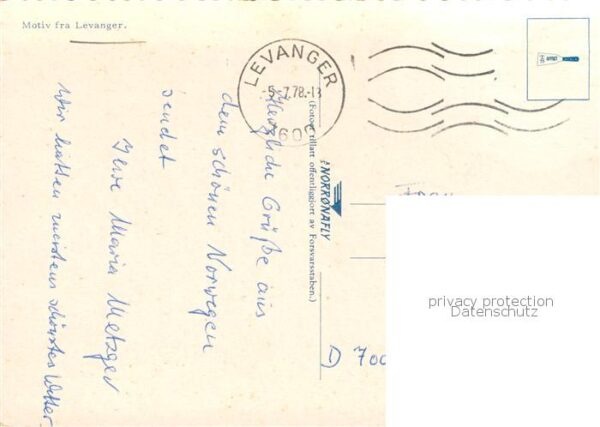 Motiv fra Levanger.
LEVANGER
-5-7.78.-13
7600
Herzliche Grüße aus
dem schönen Norwegen
sendet
Ihre Maria Metzger
Wir hatten meistens schönstes Wetter.
(Fotogr. tillatt offentliggjort av Forsvarsstaben.)
NORRØNAFLY
D 700
privacy protection
Datenschutz